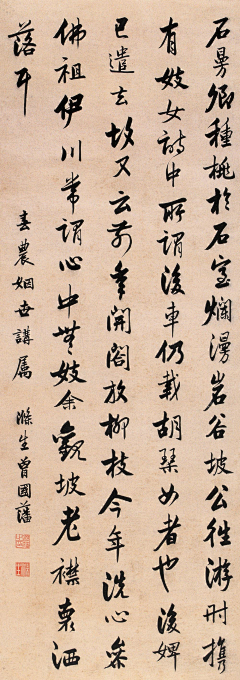 石曼卿種桃於石室爛漫岩谷坡公往游时携
有妓女詩中所謂後車仍載胡琴女者也後婢
已遣去故又云前年開閤放柳枝今年洗心参
佛祖伊川常謂心中無妓余觀坡老襟裏洒
落耳
春農姻世講属 滌生曾國藩